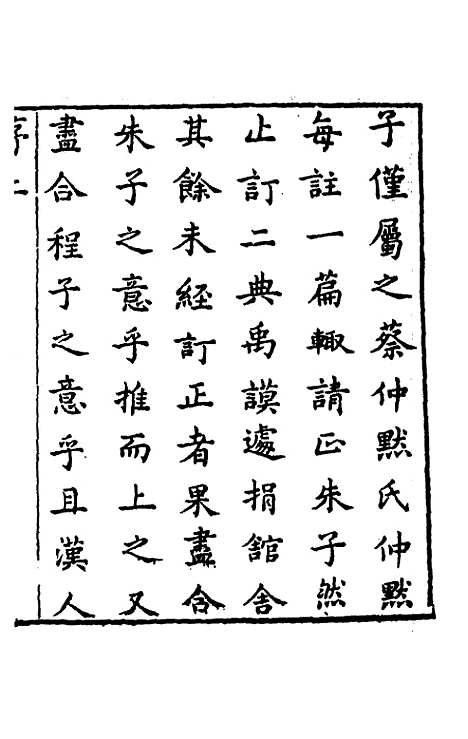 子僅屬之蔡仲黙氏仲黙
每註一篇輙請正朱子然
止訂二典禹謨遽捐舘舎
其餘未經訂正者果盡合
朱子之意乎推而上之又
盡合程子之意乎且漢人
序二